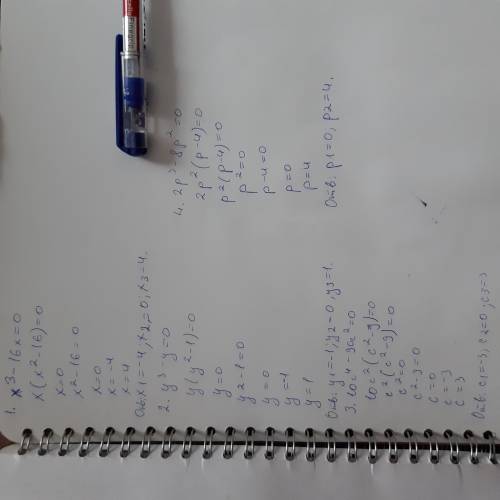 1. x3-16x=0
x(x²-16)=0
x=0
x²-16=0
x=0
x=-4
x=4
Отв: x1=-4, x2=0; x3=4.
2. y³-y=0
y(y²-1)=0
y=0
y2-1=0
y=0
y=-1
y=1
Отв: y1=-1; y2=0, y3=1.
c²(c²-9)=0
c²=0
c²-9=0
c=0
c=-3
c=3
Отв: c1=-3; c2=0; c3=3
4. 2p³-8p²=0
2p²(p-4)=0
p²(p-4)=0
p²=0
p-4=0
p=0
p=4
Отв: p1=0; p2=4.